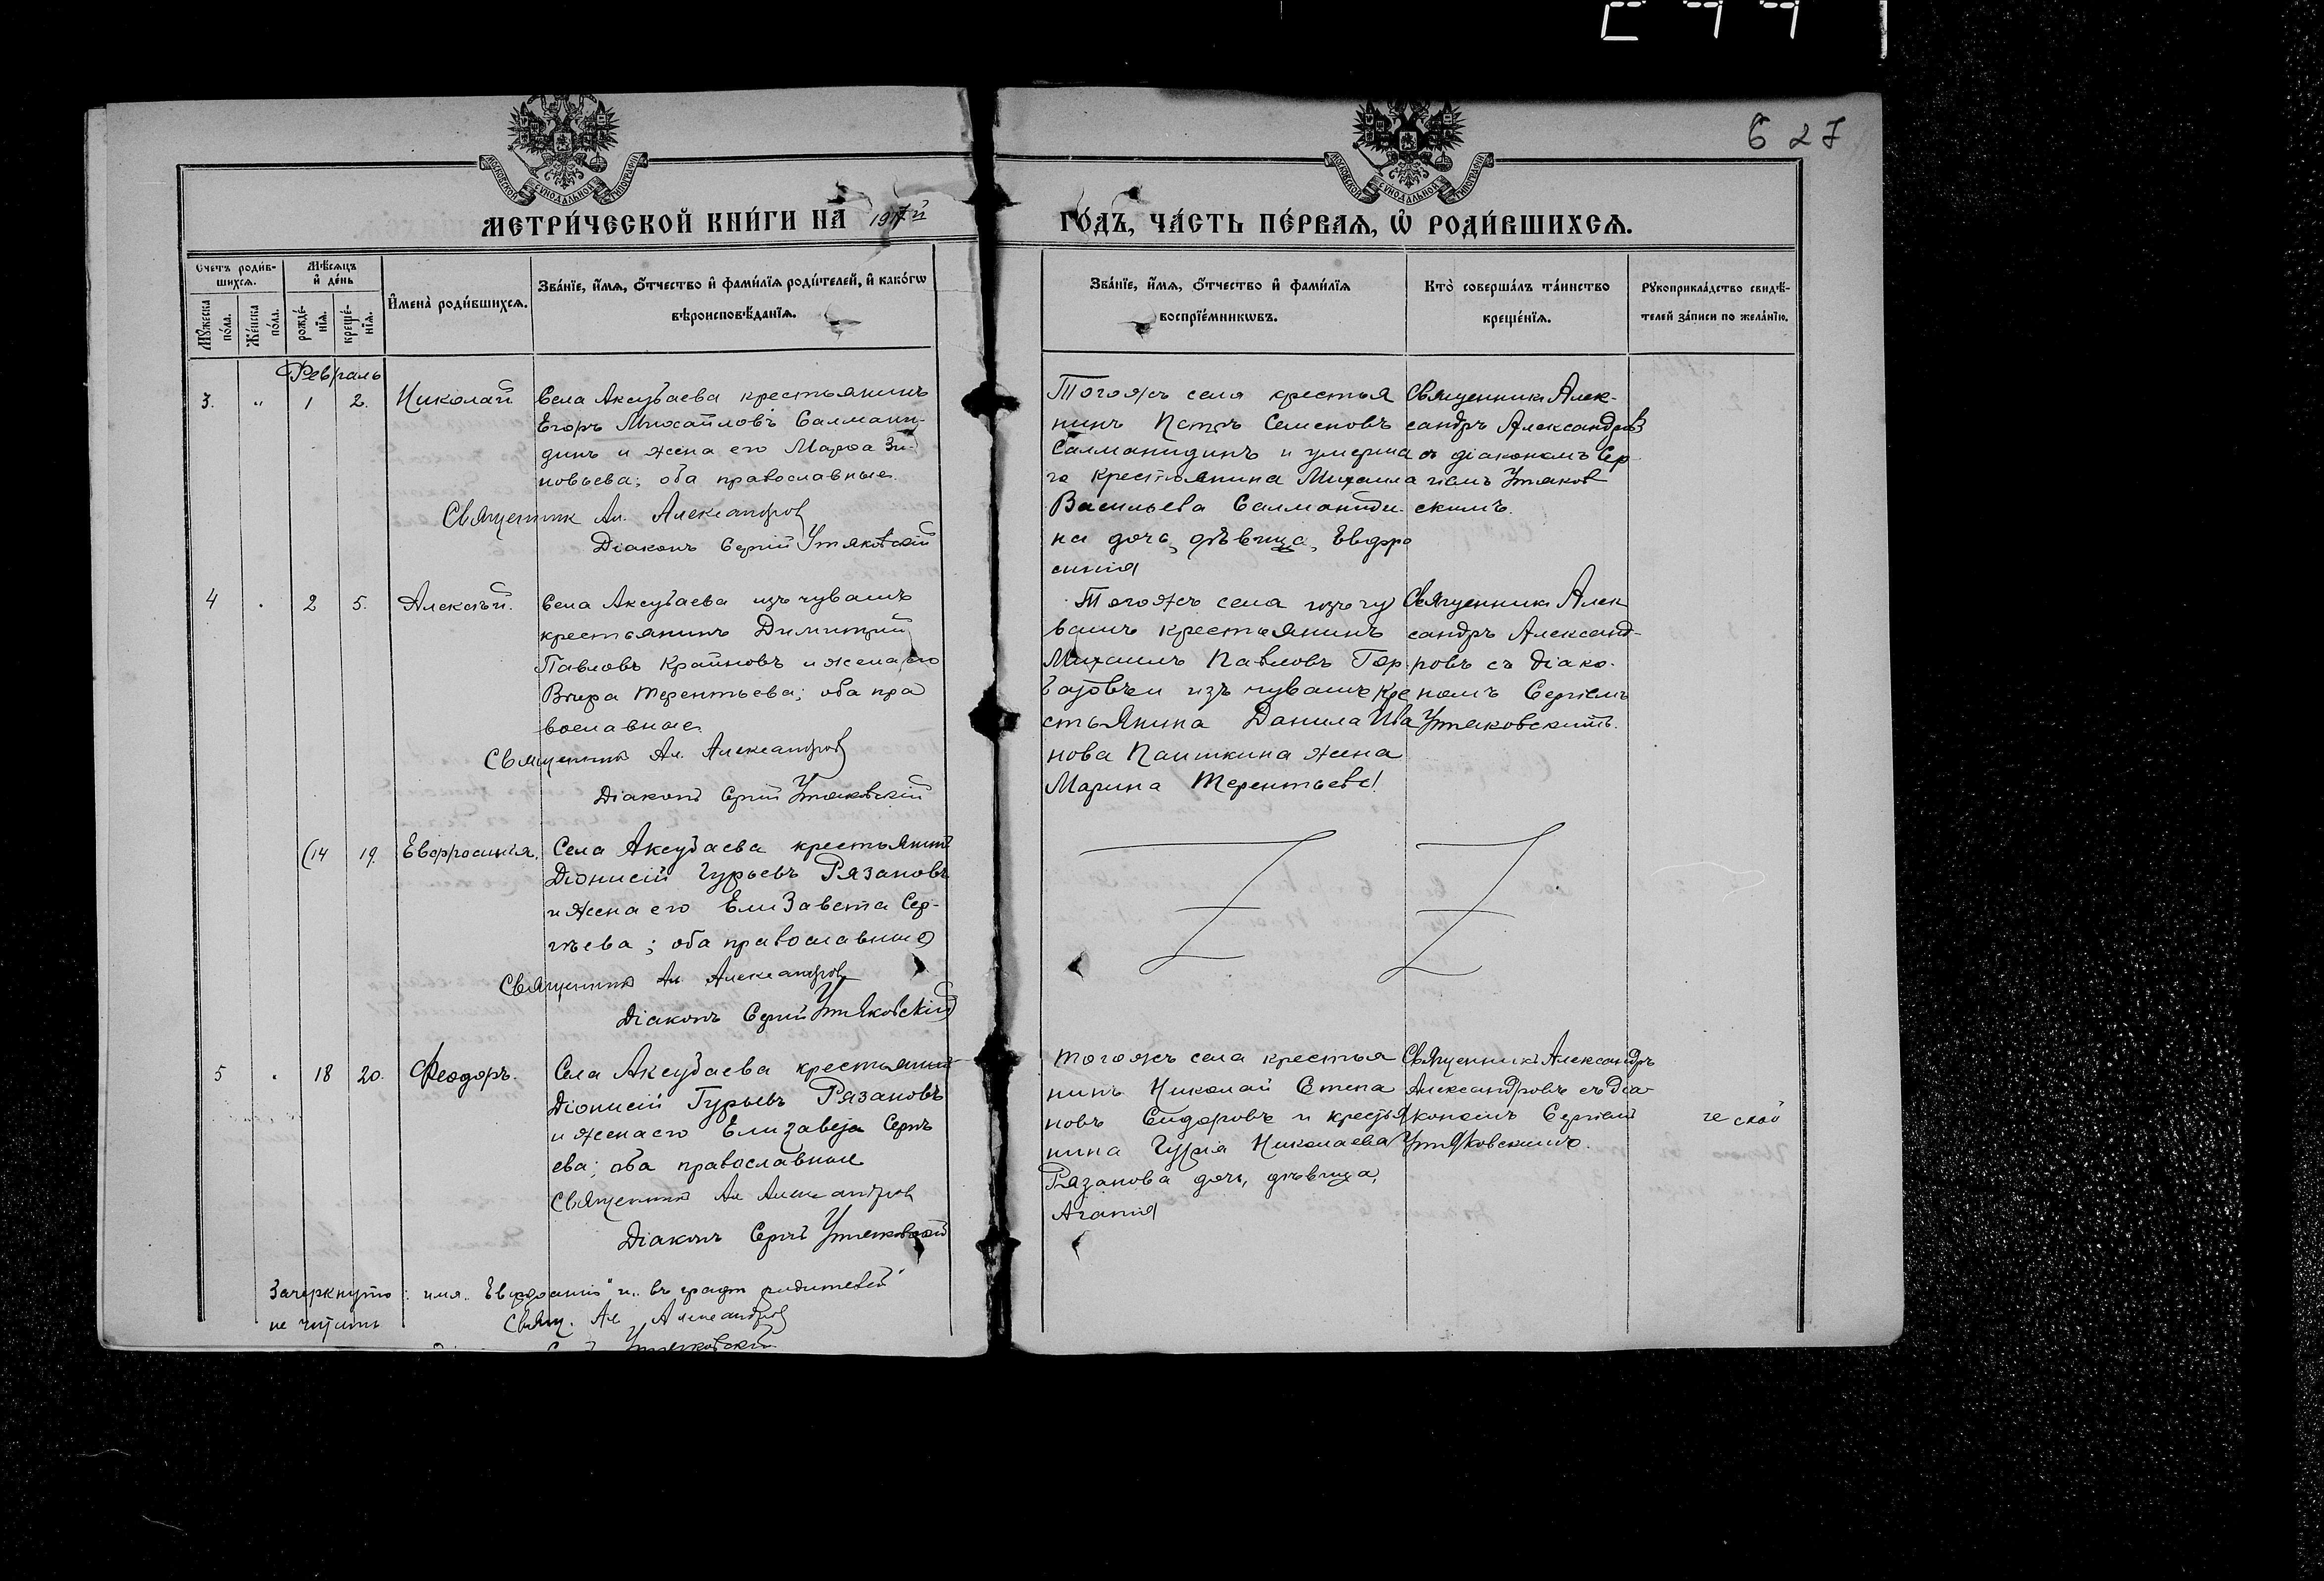 627
МОСКОВСКОЙ СѴНОДАЛЬНОЙ ТИПОГРАФІИ
МОСКОВСКОЙ СѴНОДАЛЬНОЙ ТИПОГРАФІИ
МЕТРИ́ЧЕСКОЙ КНИ́ГИ НА̀ 1917й
ГО́ДЪ, ЧА́СТЬ ПЕ́РВАѦ, Ѡ҆ РОДИ́ВШИХСѦ.
Счетъ роди́в-
шихсѧ.
Мꙋ́жеска по́ла.
Же́нска по́ла.
Мѣ́сѧцъ
и҆ де́нь
рожде́-нїѧ.
креще́-нїѧ.
И҆мена̀ роди́вшихсѧ.
Зва́нїе, и҆́мѧ, ѻ҆́тчество и҆ фами́лїѧ роди́телей, и҆ како́гѡ
вѣроисповѣ́данїѧ.
Зва́нїе, и҆́мѧ, ѻ҆́тчество и҆ фами́лїѧ
воспрїе́мникѡвъ.
Кто̀ соверша́лъ та́инство
креще́нїѧ.
Рꙋкоприкла́дство свидѣ́-
телей за́писи по жела́нїю.
Февраль
3. " 1 2. Николай
Села Аксубаева крестьянинъ
Егоръ Михайловъ Салмани-
динъ и жена его Марѳа Зи-
новьева; оба православные.
Священник Ал. Александров
Діаконъ Сергій Утяковскій
Тогожъ села крестья
нинъ Петръ Семеновъ
Салманидинъ и умерша
го крестьянина Михаила
Васильева Салманиди-
на дочь, дѣвица, Евфро
синія
Священникъ Алек-
сандръ Александровъ
съ діакономъ Сер
гіемъ Утяков
скимъ.
4 " 2 5. Алексѣй.
Села Аксубаева изъ чувашъ
крестьянинъ Димитрий
Павловъ Крайновъ и жена его
Вѣра Терентьева; оба пра
вославные.
Священник Ал. Александров
Діаконъ Сергій Утяковскій
Тогожъ села изъ чу
вашъ крестьянинъ
Михаилъ Павловъ Гор
изъ чувашъ кре
стьянина Данила Ива
нова Паишкина жена
Марина Терентьева.
Священникъ Алек
сандръ Александ-
ровъ съ діако-
номъ Сергіемъ
Утяковскимъ.
(14 19. Евфросинія.
Села Аксубаева крестьянинъ
Діонисій Гурьевъ Рязановъ
и жена его Елизавета Сер-
гѣева; оба православные
Священник Ал Александров
Діаконъ Сергій Утяковскій
5 " 18 20. Ѳеодоръ.
Села Аксубаева крестьянинъ
Діонисій Гурьевъ Рязановъ
и жена его Елизавета Сергѣ
ева; оба православные
Священник Ал Александров
Діаконъ Сергій Утяковскій
Тогожъ села крестья
нинъ Николай Степа
новъ Сидоровъ и крестья
нина Гурія Николаева
Рязанова дочь, дѣвица,
Агапія
Священникъ Александръ
Александровъ съ діа-
кономъ Сергіемъ
Утяковскимъ.
ческой
Зачеркнуто: имя „Евфросинія" и „въ графѣ родителей"
не читать Свящ. Ал Александров
Утяковскій